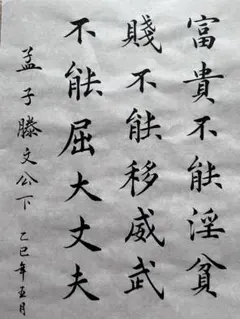 富貴不能淫貧
賤不能移威武
不能屈大丈夫
孟子滕文公下 乙巳年五月